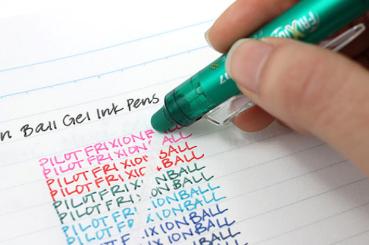 n Ball Gel Ink Pens
PILOT FRIXION B
PILOT FRIXION BALL
PILOT FRIXI BALL
PILOT FRIXIO BALL
PILOT FRIXI BALL
PILOT FRIX NBALL
PILOT FRI IONBALL
PILOT FR XIONBALL
PILOT F IXIONBALL